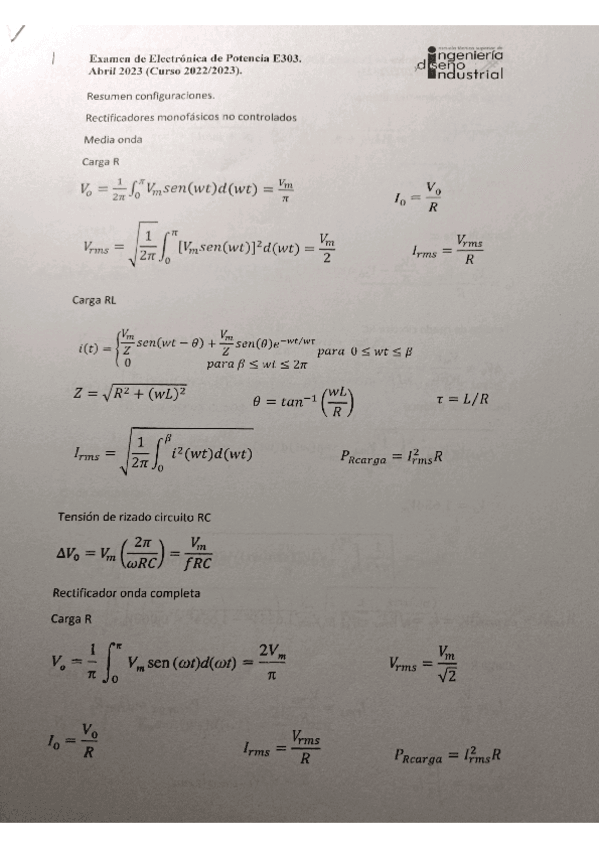 Examen de Electrónica de Potencia E303.
Abril 2023 (Curso 2022/2023).
ingeniería
diseño
industrial
Resumen configuraciones.
Rectificadores monofásicos no controlados
Media onda
Carga R
V_o = \frac{1}{2π} ∫_0^π V_m sen(wt)d(wt) = \frac{V_m}{π}    I_o = \frac{V_o}{R}
V_{rms} = \sqrt{\frac{1}{2π} ∫_0^π [V_m sen(wt)]^2 d(wt)} = \frac{V_m}{2}    I_{rms} = \frac{V_{rms}}{R}
Carga RL
i(t) = { \frac{V_m}{Z} sen(wt − θ) + \frac{V_m}{Z} sen(θ)e^{−wt/wτ} para 0 ≤ wt ≤ β
0 para β ≤ wt ≤ 2π
Z = \sqrt{R^2 + (wL)^2}    θ = tan^{−1} (\frac{wL}{R})    τ = L/R
I_{rms} = \sqrt{\frac{1}{2π} ∫_0^β i^2(wt)d(wt)}    P_{Rcarga} = I_{rms}^2 R
Tensión de rizado circuito RC
ΔV_0 = V_m (\frac{2π}{ωRC}) = \frac{V_m}{fRC}
Rectificador onda completa
Carga R
V_o = \frac{1}{π} ∫_0^π V_m sen (ωt)d(ωt) = \frac{2V_m}{π}    V_{rms} = \frac{V_m}{\sqrt{2}}
I_o = \frac{V_0}{R}    I_{rms} = \frac{V_{rms}}{R}    P_{Rcarga} = I_{rms}^2 R